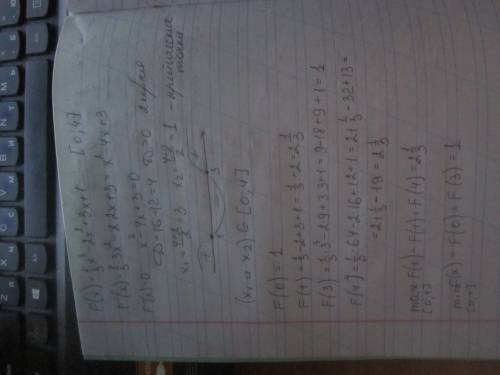 F(x) = 1/3 x³ - 2x² + 3x + 1 [0,4]
F'(x) = 1/3 · 3x² - 2·2x + 3 = x² - 4x + 3
F'(x) = 0 x² - 4x + 3 = 0
D = 16 - 12 = 4 D > 0 2 корня
x₁ = (4+2)/2 = 3 x₂ = (4-2)/2 = 1 - критические точки
+ - + 1 3
(x₁ и x₂) ∈ [0,4]
F(0) = 1
F(1) = 1/3 - 2 + 3 + 1 = 1/3 + 2 = 2 1/3
F(3) = 1/3 · 3³ - 2·9 + 3·3 + 1 = 9 - 18 + 9 + 1 = 1
F(4) = 1/3 · 64 - 2·16 + 12 + 1 = 21 1/3 - 32 + 13 =
= 21 1/3 - 19 = 2 1/3
max F(x) = F(1) = F(4) = 2 1/3
[0,4]
min F(x) = F(0) = F(3) = 1
[0,4]